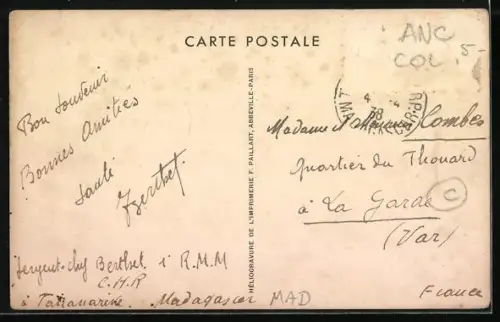 CARTE POSTALE
ANC
COL. 5-
Bon souvenir
Bonnes Amitiés
Santé
Berthet
Sergent-chef Berthet 1° R.M.M
C.H.R
à Tananarive. Madagascar MAD
HÉLIOGRAVURE DE L'IMPRIMERIE F. PAILLART, ABBEVILLE-PARIS
4 -4
38
Madame et Monsieur Combes
Quartier du Thouard
à La Garde
C
(Var)
France